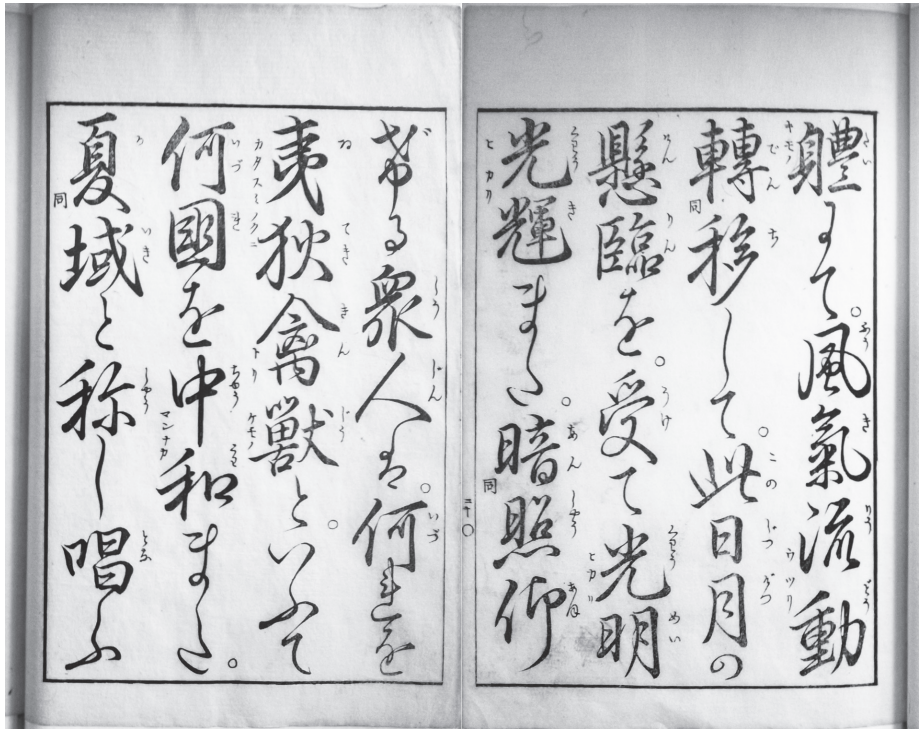 體にて。風氣流動
轉移して。此日月の
懸臨を。受て光明
光輝また。暗照仰
ざる衆人は。何れを
夷狄禽獸と。いふて
何國を中和また。
夏域と称し唱ふ